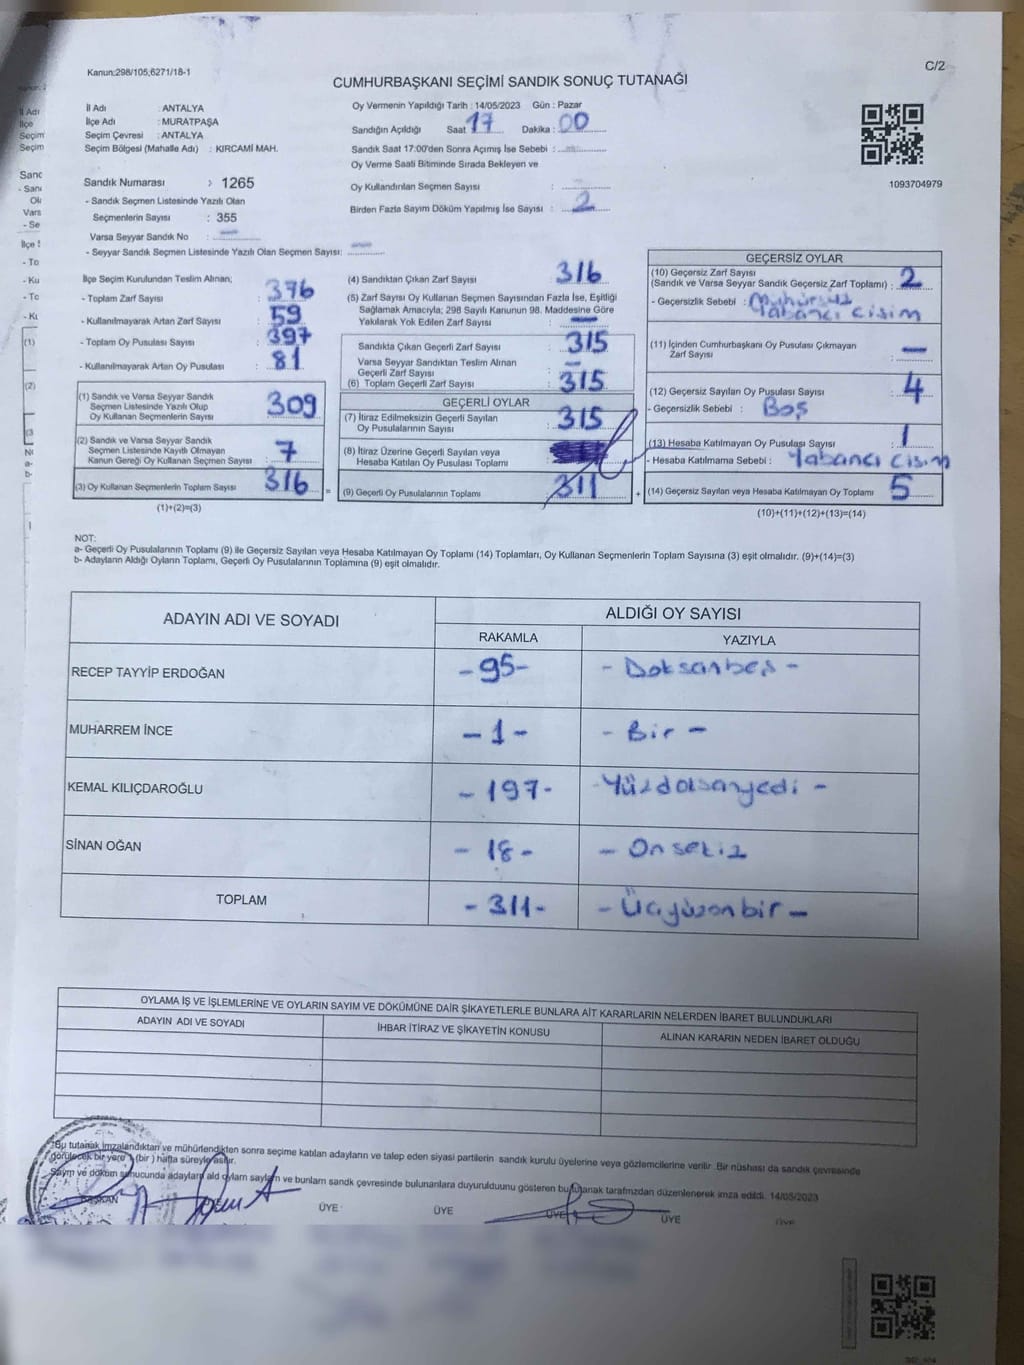 C/2
Kanun:298/105,6271/18-1
CUMHURBAŞKANI SEÇİMİ SANDIK SONUÇ TUTANAĞI
İl Adı : ANTALYA
İlçe Adı : MURATPAŞA
Seçim Çevresi : ANTALYA
Seçim Bölgesi (Mahalle Adı) : KIRCAMİ MAH.
Sandık Numarası : 1265
- Sandık Seçmen Listesinde Yazılı Olan
Seçmenlerin Sayısı : 355
Varsa Seyyar Sandık No : —
- Seyyar Sandık Seçmen Listesinde Yazılı Olan Seçmen Sayısı: —
Oy Vermenin Yapıldığı Tarih : 14/05/2023 Gün : Pazar
Sandığın Açıldığı Saat 17 Dakika : 00
Sandık Saat 17:00'den Sonra Açımış İse Sebebi :
Oy Verme Saati Bitiminde Sırada Bekleyen ve
Oy Kullandırılan Seçmen Sayısı :
Birden Fazla Sayım Döküm Yapılmış İse Sayısı : 2
1093704979
İlçe Seçim Kurulundan Teslim Alınan;
- Toplam Zarf Sayısı : 376
- Kullanılmayarak Artan Zarf Sayısı : 59
- Toplam Oy Pusulası Sayısı : 397
- Kullanılmayarak Artan Oy Pusulası : 81
(1) Sandık ve Varsa Seyyar Sandık
Seçmen Listesinde Yazılı Olup
Oy Kullanan Seçmenlerin Sayısı : 309
(2) Sandık ve Varsa Seyyar Sandık
Seçmen Listesinde Kayıtlı Olmayan
Kanun Gereği Oy Kullanan Seçmen Sayısı : 7
(3) Oy Kullanan Seçmenlerin Toplam Sayısı : 316
(1)+(2)=(3)
(4) Sandıktan Çıkan Zarf Sayısı : 316
(5) Zarf Sayısı Oy Kullanan Seçmen Sayısından Fazla İse, Eşitliği
Sağlamak Amacıyla; 298 Sayılı Kanunun 98. Maddesine Göre
Yakılarak Yok Edilen Zarf Sayısı : —
Sandıkta Çıkan Geçerli Zarf Sayısı : 315
Varsa Seyyar Sandıktan Teslim Alınan
Geçerli Zarf Sayısı : —
(6) Toplam Geçerli Zarf Sayısı : 315
GEÇERLİ OYLAR
(7) İtiraz Edilmeksizin Geçerli Sayılan
Oy Pusulalarının Sayısı : 315
(8) İtiraz Üzerine Geçerli Sayılan veya
Hesaba Katılan Oy Pusulası Toplamı :
= (9) Geçerli Oy Pusulalarının Toplamı : 311
GEÇERSİZ OYLAR
(10) Geçersiz Zarf Sayısı
(Sandık ve Varsa Seyyar Sandık Geçersiz Zarf Toplamı) : 2
- Geçersizlik Sebebi : Mühürsüz
Yabancı cisim
(11) İçinden Cumhurbaşkanı Oy Pusulası Çıkmayan
Zarf Sayısı : —
(12) Geçersiz Sayılan Oy Pusulası Sayısı : 4
- Geçersizlik Sebebi : Boş
(13) Hesaba Katılmayan Oy Pusulası Sayısı : 1
- Hesaba Katılmama Sebebi : Yabancı cisim
+ (14) Geçersiz Sayılan veya Hesaba Katılmayan Oy Toplamı : 5
(10)+(11)+(12)+(13)=(14)
NOT:
a- Geçerli Oy Pusulalarının Toplamı (9) ile Geçersiz Sayılan veya Hesaba Katılmayan Oy Toplamı (14) Toplamları, Oy Kullanan Seçmenlerin Toplam Sayısına (3) eşit olmalıdır. (9)+(14)=(3)
b- Adayların Aldığı Oyların Toplamı, Geçerli Oy Pusulalarının Toplamına (9) eşit olmalıdır.
ADAYIN ADI VE SOYADI ALDIĞI OY SAYISI
RAKAMLA YAZIYLA
RECEP TAYYİP ERDOĞAN -95- - Doksanbeş -
MUHARREM İNCE -1- - Bir -
KEMAL KILIÇDAROĞLU -197- -Yüzdoksanyedi -
SİNAN OĞAN -18- - Onsekiz
TOPLAM -311- -Üçyüzonbir-
OYLAMA İŞ VE İŞLEMLERİNE VE OYLARIN SAYIM VE DÖKÜMÜNE DAİR ŞİKAYETLERLE BUNLARA AİT KARARLARIN NELERDEN İBARET BULUNDUKLARI
ADAYIN ADI VE SOYADI İHBAR İTİRAZ VE ŞİKAYETİN KONUSU ALINAN KARARIN NEDEN İBARET OLDUĞU
Bu tutanak imzalandıktan ve mühürlendikten sonra seçime katılan adayların ve talep eden siyasi partilerin sandık kurulu üyelerine veya gözlemcilerine verilir. Bir nüshası da sandık çevresinde
görülecek bir yere 1 (bir ) hafta süreyle asılır.
Sayım ve döküm sonucunda adayların ald oyların sayıları ve bunların sandık çevresinde bulunanlara duyurulduunu gösteren bu tutanak tarafmızdan düzenlenerek imza edildi. 14/05/2023
BAŞKAN ÜYE ÜYE ÜYE ÜYE ÜYE